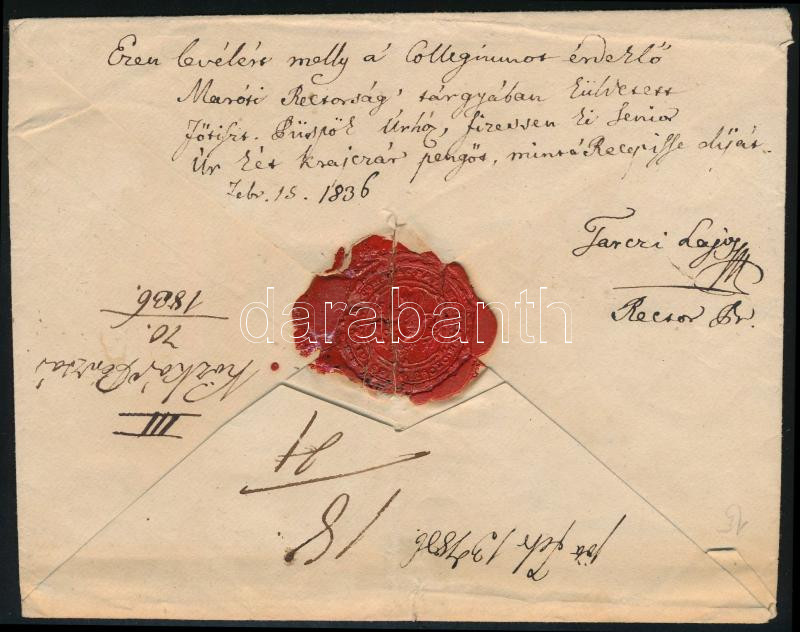 Ezen levélért melly a' Collegiumot érdeklő
Marosi Rectorság' tárgyában küldetett
Főtiszt. Püspök Úrhoz, fizessen ki Senior
Úr két krajczár pengőt, mint a' Recepisse díját.
Febr. 15. 1836
Tarczi Lajos
Rector Pr.
darabanth
III
70.
1836.
18
21
Febr 13 1836
15